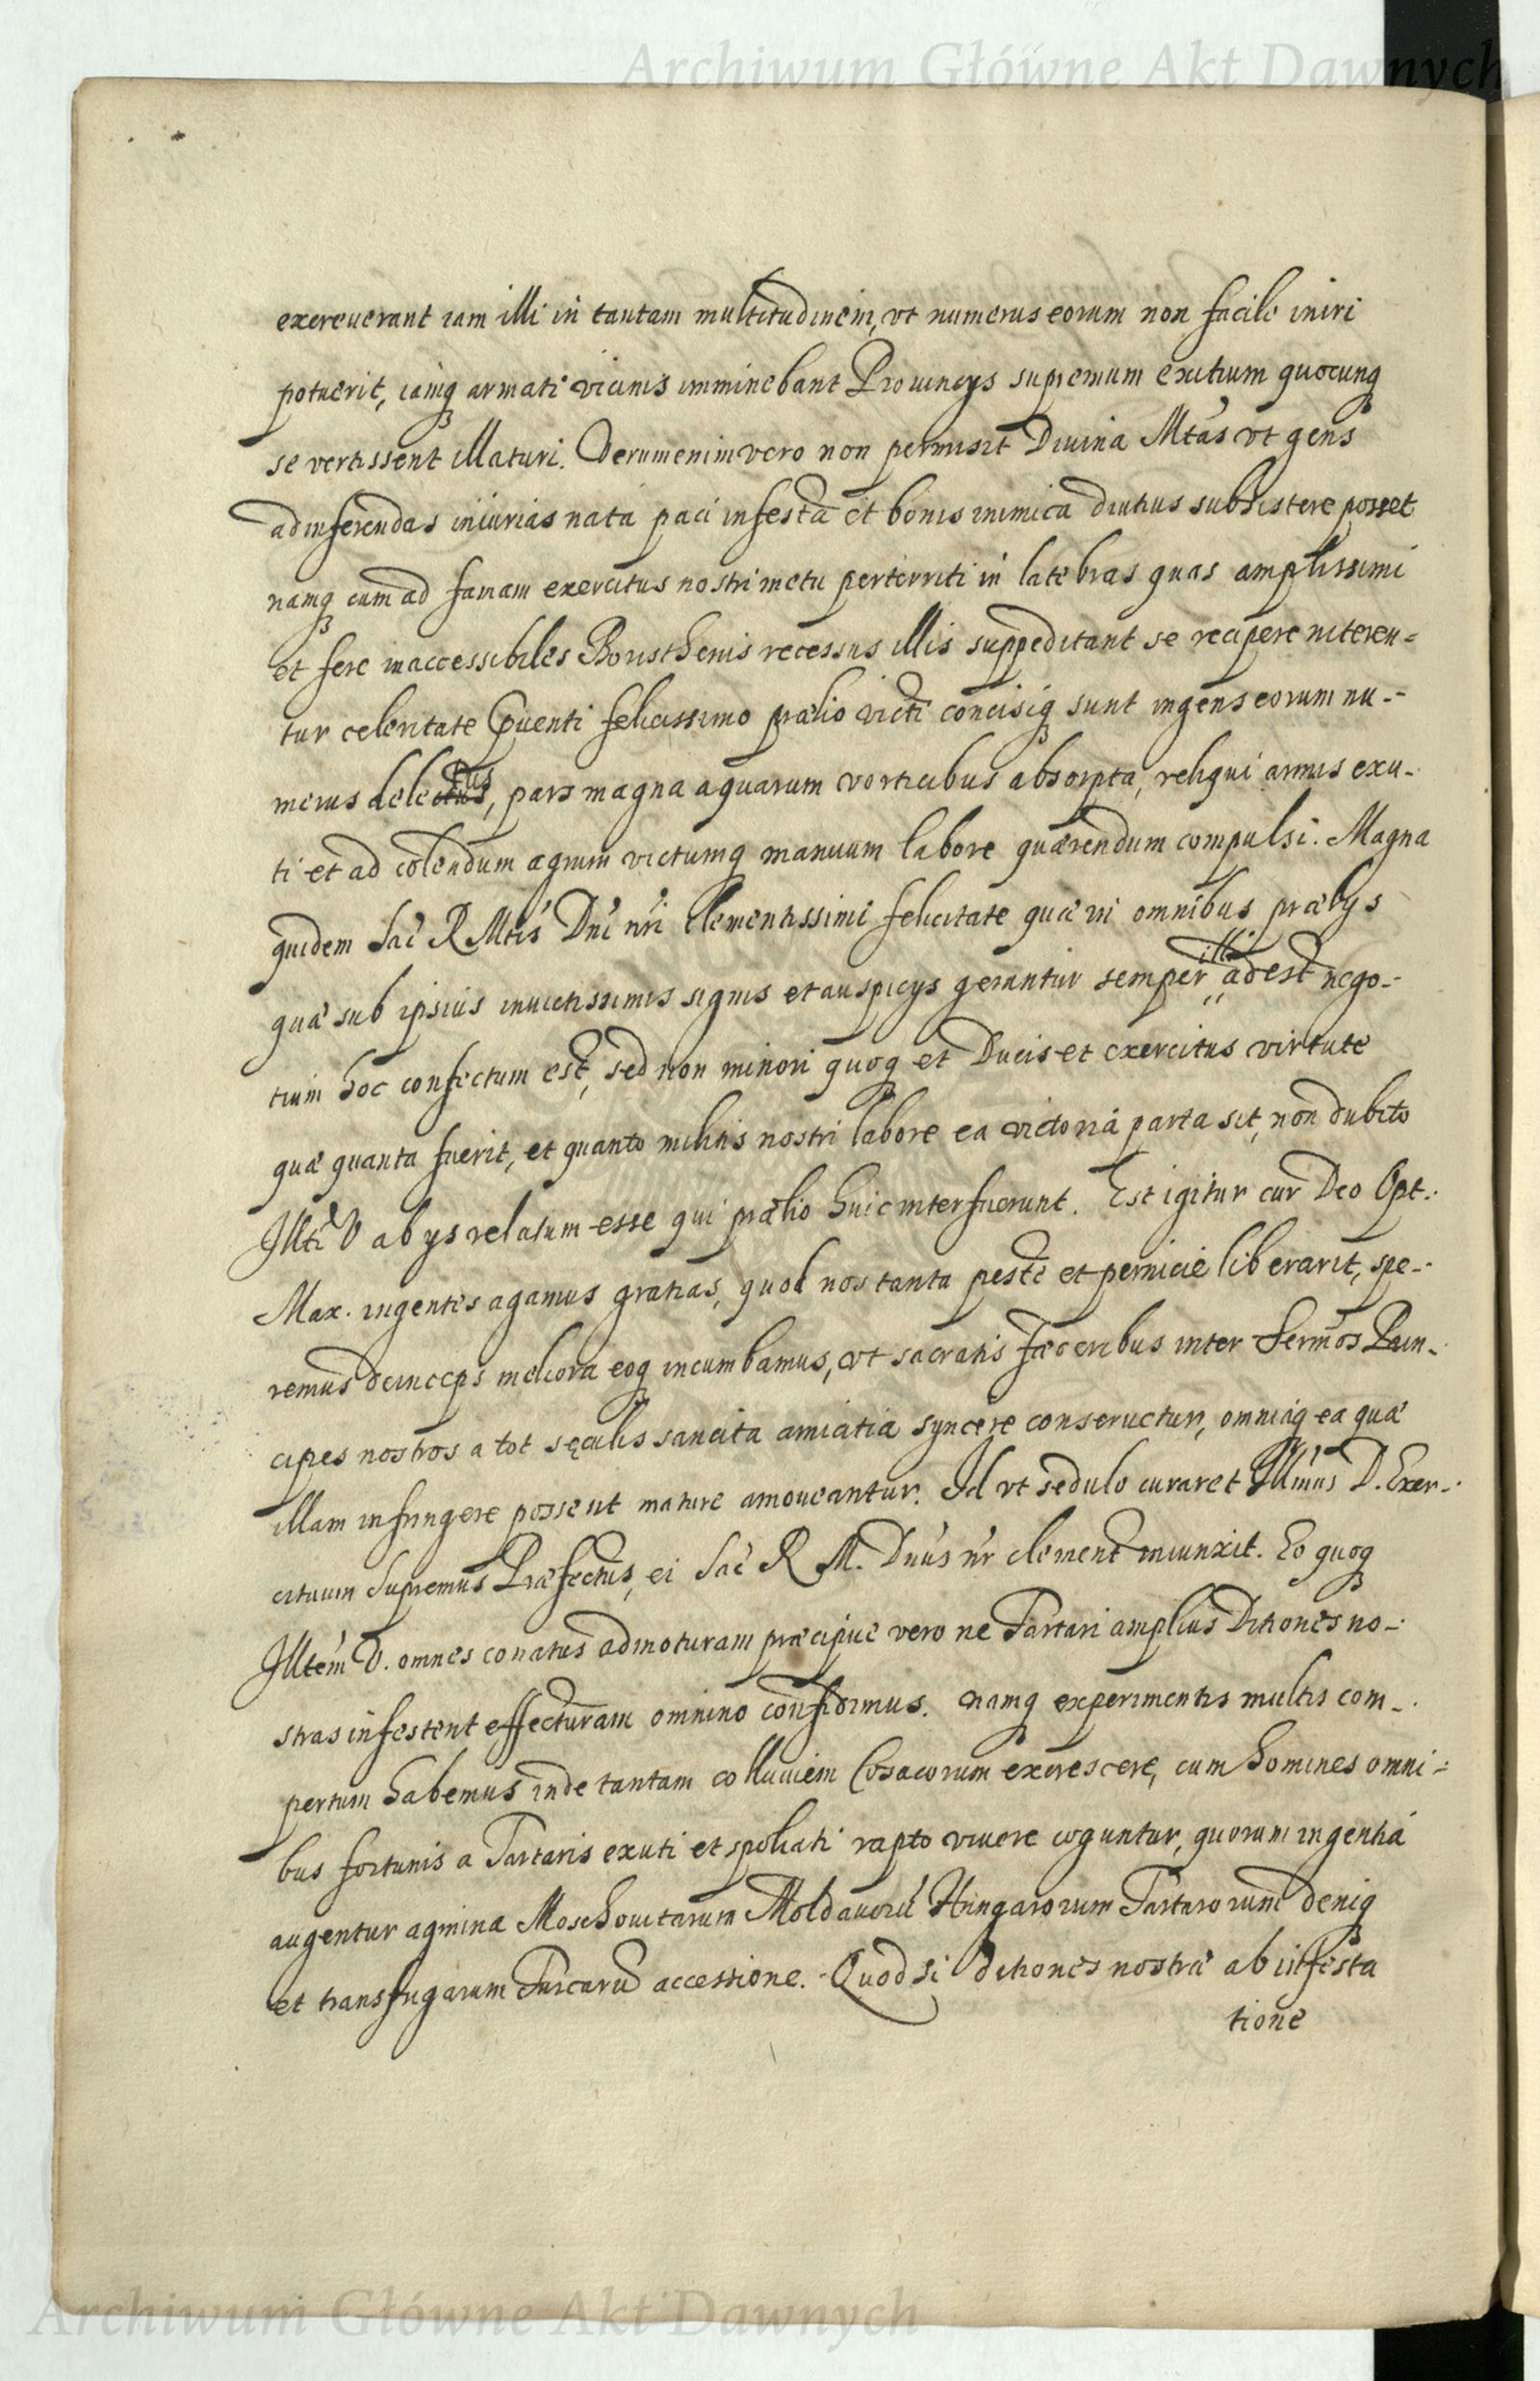 Archiwum Główne Akt Dawnych
excreuerant iam illi in tantam multitudinem, vt numerus eorum non facile iniri
potuerit, iamq armati vicinis imminebant Prouincys supremum exitium quocunq
se vertissent illaturi. Verumenimvero non permisit Diuina Mtas vt gens
ad inferendas iniurias nata paci infesta et bonis inimica diutius subsistere posset
namq cum ad famam exercitus nostri metu perterriti in latebras quas amplissimi
et fere inaccessibiles Boristhenis recessus illis suppeditant se recipere niteren=
tur celeritate praeuenti felicissimo prælio victi concisiq sunt ingens eorum nu-
merus deletus, pars magna aquarum vorticibus absorpta, reliqui armis exu-
ti et ad colendum agrum victumq manuum labore quærendum compulsi. Magna
quidem Sac R Mtis Dni nri clementissimi felicitate quæ in omnibus prælys
quæ sub ipsius inuictissimis signis et auspicys geruntur semper illi adest nego-
tium hoc confectum est, sed non minori quoq et Ducis et exercitus virtute
quæ quanta fuerit, et quanto militis nostri labore ea victoria parta sit, non dubito
Illti V ab ys relatum esse qui prælio huic interfuerunt. Est igitur cur Deo Opt.
Max. ingentes agamus gratias, quod nos tanta peste et pernicie liberarit, spe-
remus deinceps meliora eoq incumbamus, vt sacratis fœderibus inter Sermos Prin-
cipes nostros a tot sęculis sancita amicitia syncere conseruetur, omniaq ea quæ
illam infringere possent mature amoueantur. Id vt sedulo curaret Illmus D. Exer-
cituum Supremus Præfectus, ei Sac R M. Dnus nr clement iniunxit. Eo quoq
Illtem V. omnes conatus admoturam præcipue vero ne Tartari amplius Ditiones no-
stras infestent effecturam omnino confidimus. namq experimentis multis com-
pertum habemus inde tantam colluuiem Cosacorum excrescere, cum homines omni=
bus fortunis a Tartaris exuti et spoliati rapto viuere coguntur, quorum ingentia
augentur agmina Moschouitarum Moldauorū Hungarorum Tartarorum deniq
et transfugarum Turcarū accessione. Quod si ditiones nostræ ab infesta
tione
Archiwum Główne Akt Dawnych